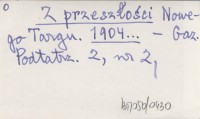 Z przeszłości Nowe-
go Targu. 1904... – Gaz.
Podtatrz. 2, nr 2,